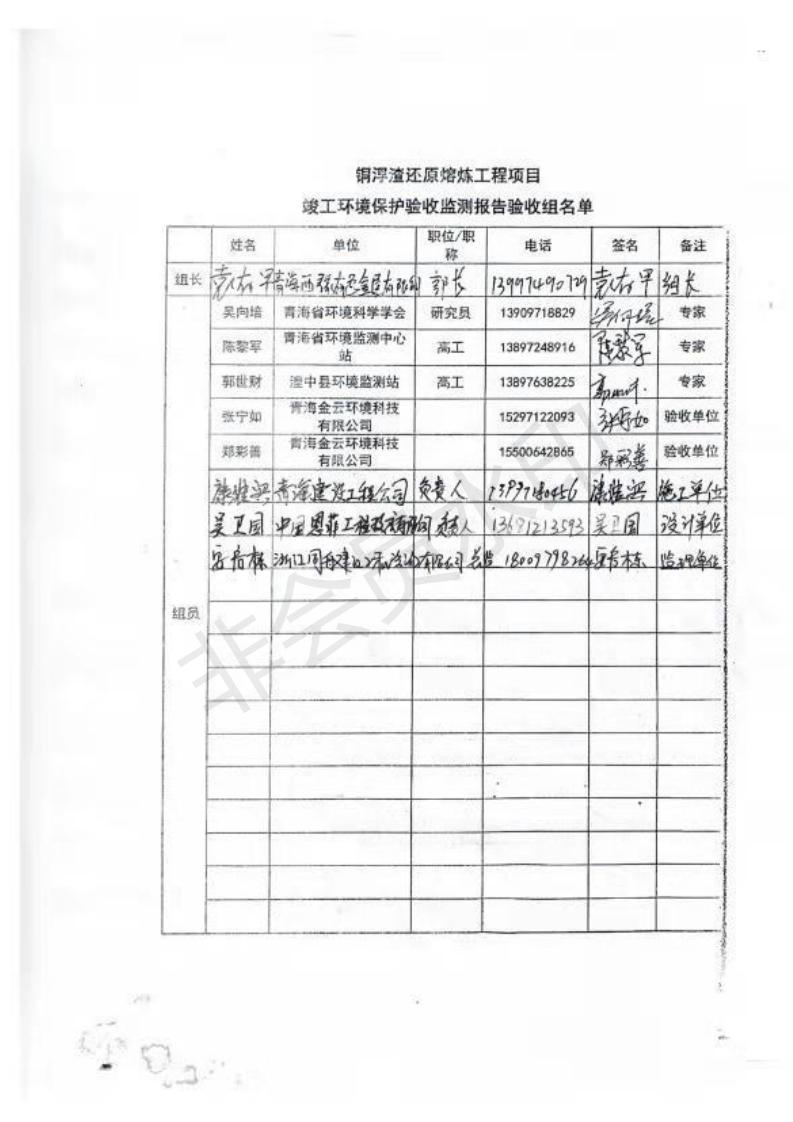 铜浮渣还原熔炼工程项目
竣工环境保护验收监测报告验收组名单
姓名 单位 职位/职称 电话 签名 备注
组长 袁存早 青海西 有限 部长 13997490729 袁存早 组长
吴向培 青海省环境科学学会 研究员 13909718829 吴向培 专家
陈黎军 青海省环境监测中心站 高工 13897248916 陈黎军 专家
郭世财 湟中县环境监测站 高工 13897638225 专家
张宁如 青海金云环境科技有限公司 15297122093 张宁如 验收单位
郑彩善 青海金云环境科技有限公司 15500642865 郑彩善 验收单位
青海建设工程公司 负责人 施工单位
吴卫国 中国恩菲工程技术有限公司 负责人 13691213593 吴卫国 设计单位
浙江 有限公司 总监 监理单位
组员
非会员水印